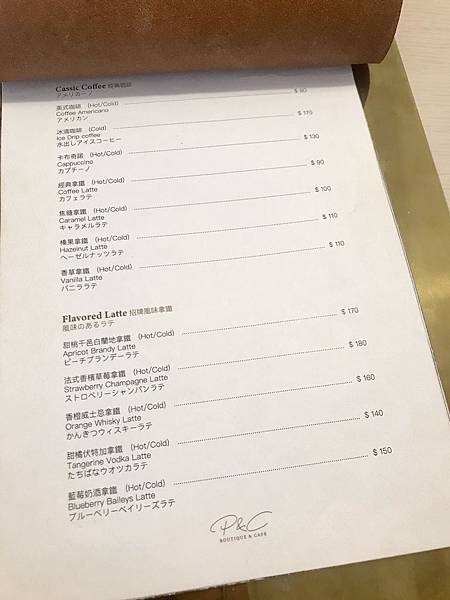 Cassic Coffee 經典咖啡
アメリカーノ
美式咖啡 (Hot/Cold) $
Coffee Americano
アメリカン
冰滴咖啡 (Cold) $ 170
Ice Drip coffee
水出しアイスコーヒー
卡布奇諾 (Hot/Cold) $ 130
Cappuccino
カプチーノ
經典拿鐵 (Hot/Cold) $ 90
Coffee Latte
カフェラテ
焦糖拿鐵 (Hot/Cold) $ 100
Caramel Latte
キャラメルラテ
榛果拿鐵 (Hot/Cold) $ 110
Hazelnut Latte
ヘーゼルナッツラテ
香草拿鐵 (Hot/Cold) $ 110
Vanilla Latte
バニララテ
Flavored Latte 招牌風味拿鐵
風味のあるラテ
甜桃干邑白蘭地拿鐵 (Hot/Cold) $ 170
Apricot Brandy Latte
ピーチブランデーラテ
法式香檳草莓拿鐵 (Hot/Cold) $ 180
Strawberry Champagne Latte
ストロベリーシャンパンラテ
香橙威士忌拿鐵 (Hot/Cold) $ 160
Orange Whisky Latte
かんきつウィスキーラテ
甜橘伏特加拿鐵 (Hot/Cold) $ 140
Tangerine Vodka Latte
たちばなウオツカラテ
藍莓奶酒拿鐵 (Hot/Cold) $ 150
Blueberry Baileys Latte
ブルーベリーベイリーズラテ
P&C
BOUTIQUE & CAFE